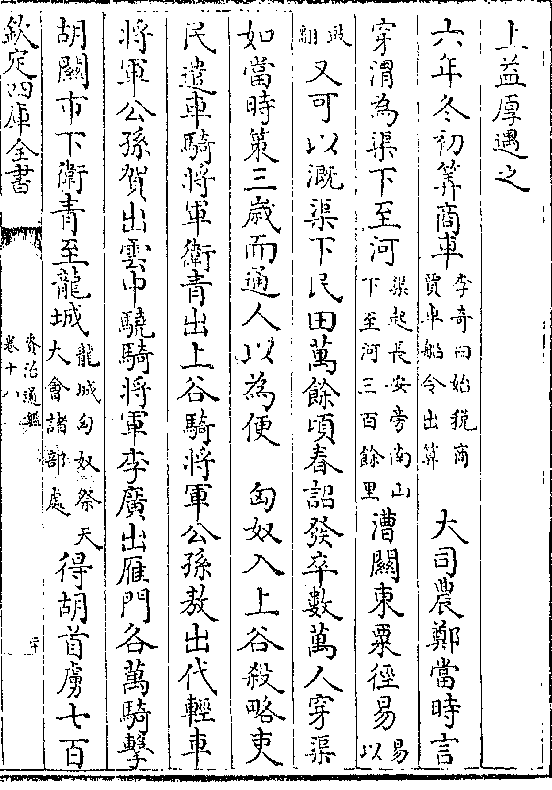 上益厚遇之
六年冬初算商車李奇曰始稅商賈車船令出算　大司農鄭當時言
穿渭為渠下至河渠起長安旁南山下至河三百餘里漕關東粟徑易易以
豉翻又可以溉渠下民田萬餘頃春詔發卒數萬人穿渠
如當時策三歲而通人以為便　匈奴入上谷殺略吏
民遣車騎將軍衛青出上谷騎將軍公孫敖出代輕車
將軍公孫賀出雲中驍騎將軍李廣出雁門各萬騎擊
胡關市下衛青至龍城龍城匈奴祭天大會諸部處得胡首虜七百
欽定四庫全書
資治通鑑
卷十八